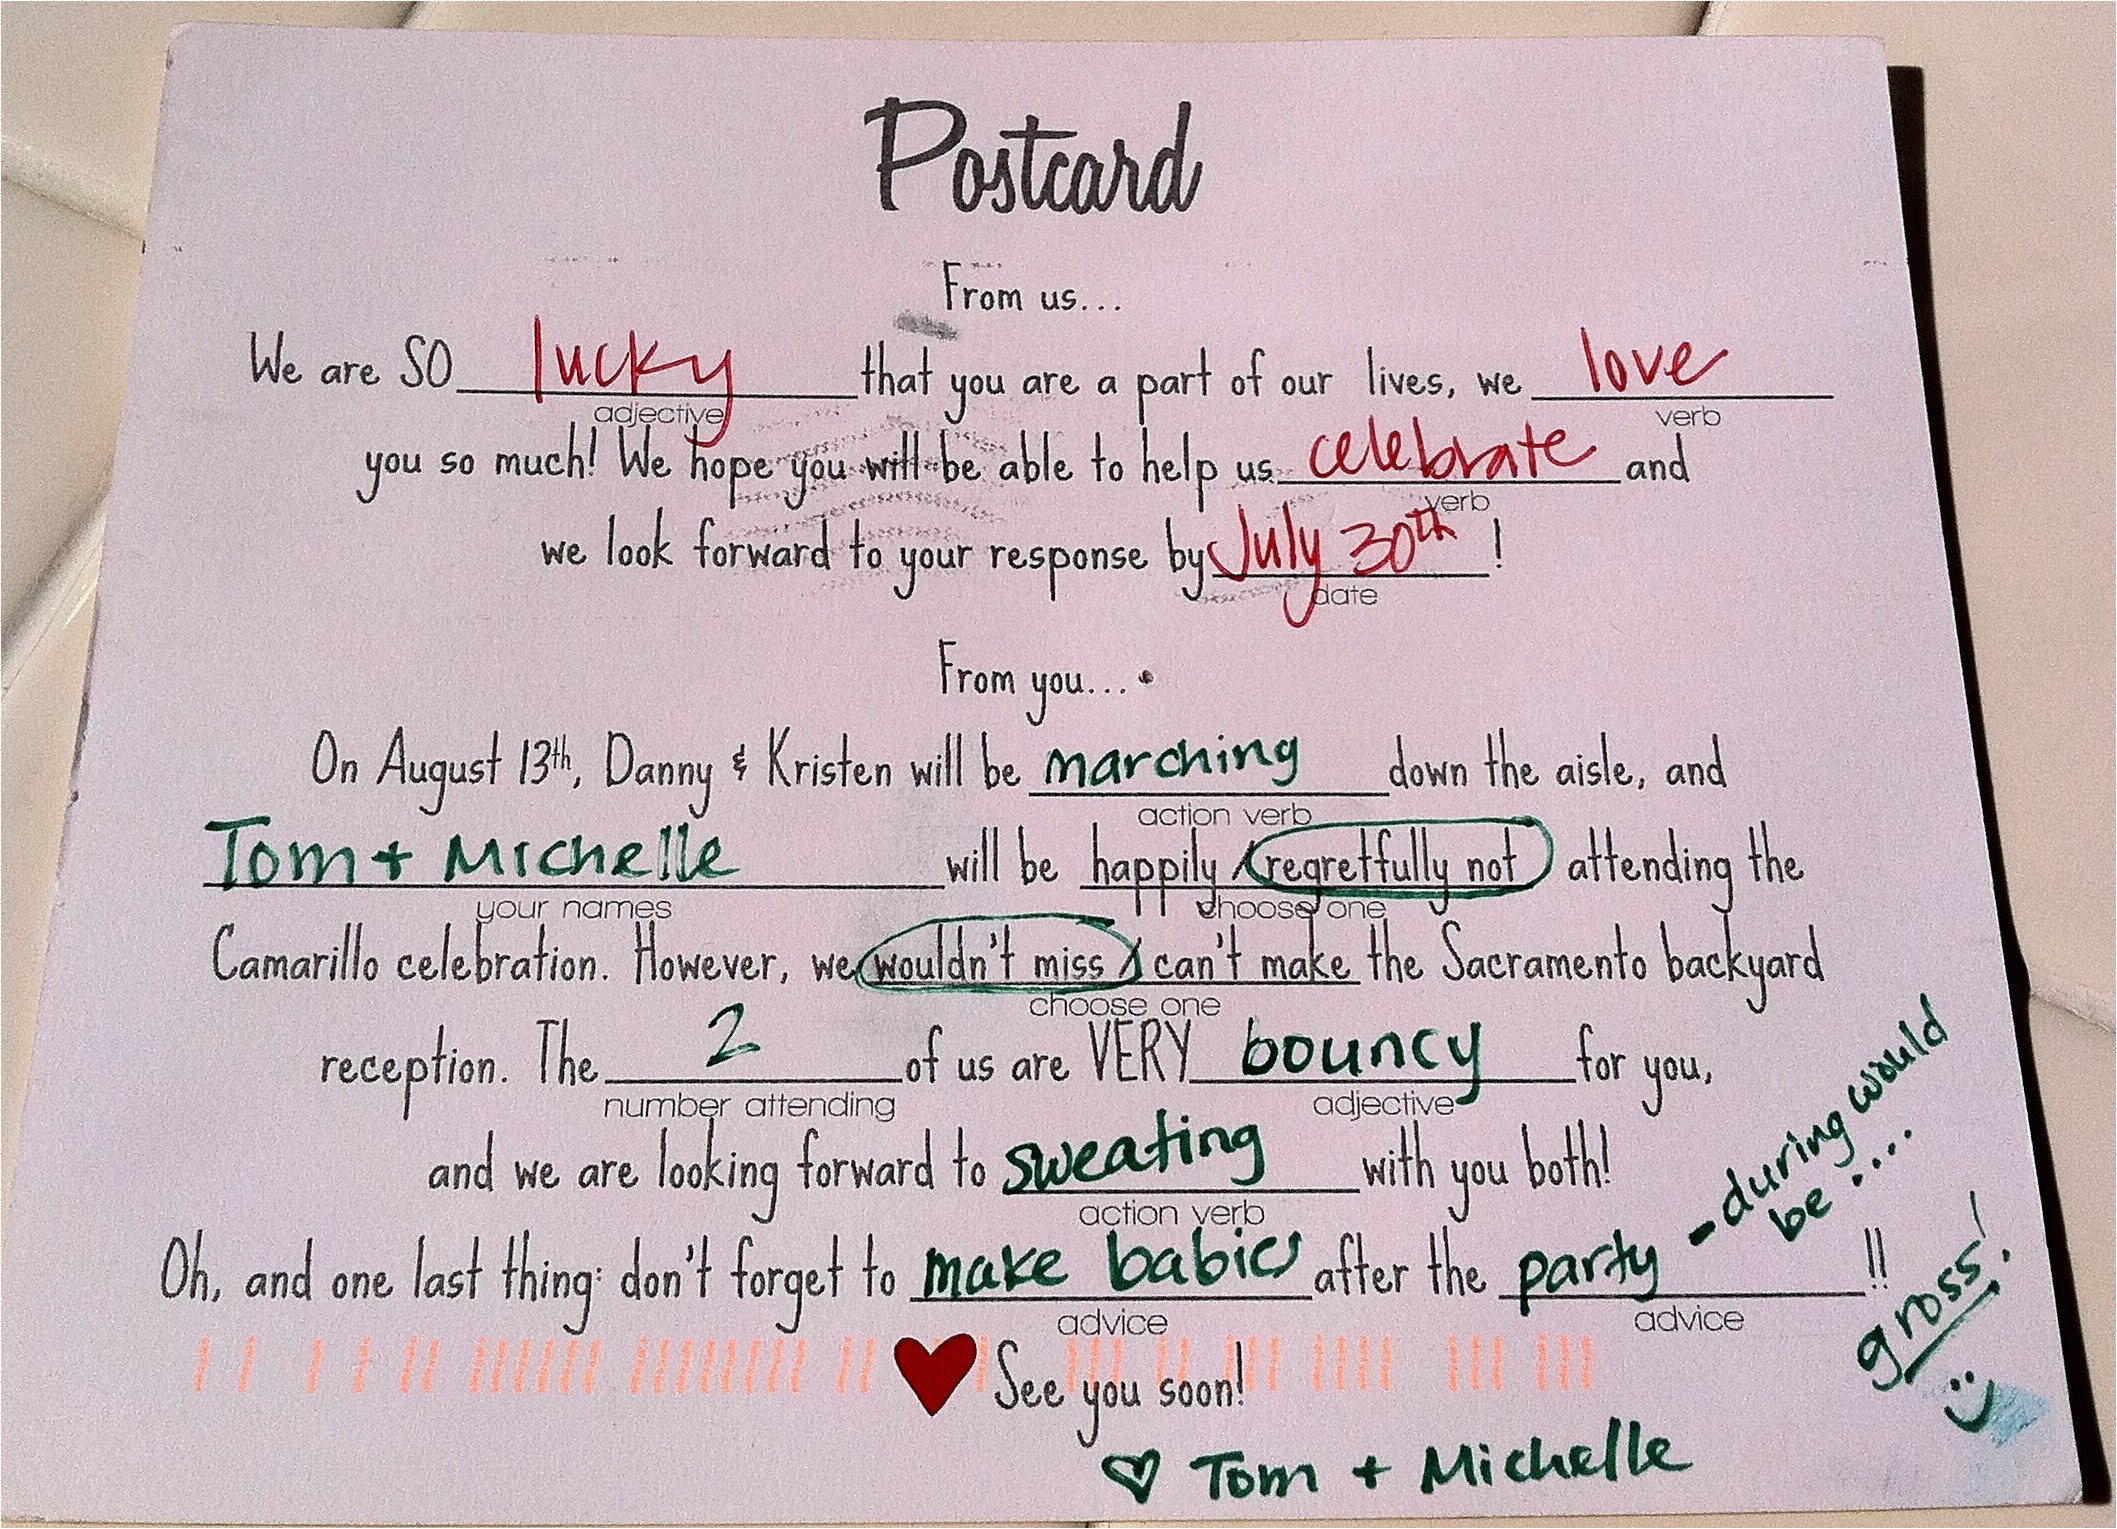 Postcard
From us...
We are SO lucky that you are a part of our lives, we love
adjective verb
you so much! We hope you will be able to help us celebrate and
verb
we look forward to your response by July 30th!
date
From you...
On August 13th, Danny & Kristen will be marching down the aisle, and
action verb
Tom + Michelle will be happily / regretfully not attending the
your names choose one
Camarillo celebration. However, we wouldn't miss / can't make the Sacramento backyard
choose one
reception. The 2 of us are VERY bouncy for you,
number attending adjective
and we are looking forward to sweating with you both!
action verb
Oh, and one last thing: don't forget to make babies after the party!!
advice advice
- during would
be....
gross!
See you soon!
♡ Tom + Michelle